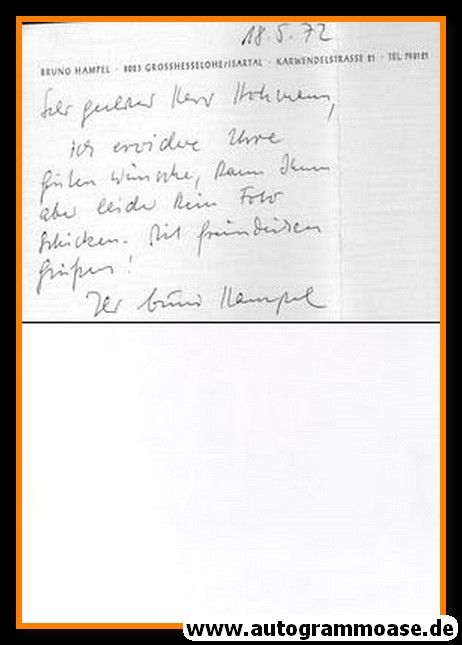 18.5.72
BRUNO HAMPEL · 8023 GROSSHESSELOHE/ISARTAL · KARWENDELSTRASSE 21 · TEL.
Sehr geehrter Herr Hohmann,
ich erwidre Ihre
guten Wünsche, kann Ihnen
aber leider kein Foto
schicken. Mit freundlichen
Grüßen!
Ihr Bruno Hampel
www.autogrammoase.de